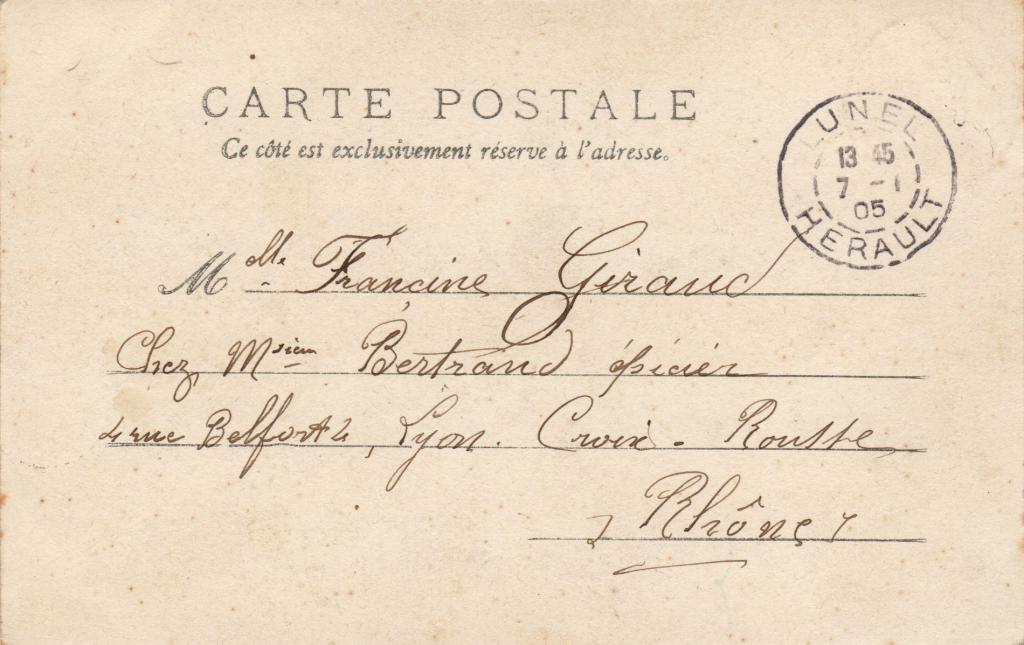 CARTE POSTALE
Ce côté est exclusivement réservé à l'adresse.
LUNEL
13 45
7 -1
05
HERAULT
Melle Francine Giraud
Chez Msieur Bertrand épicier
4 rue Belfort 4, Lyon. Croix-Rousse
Rhône